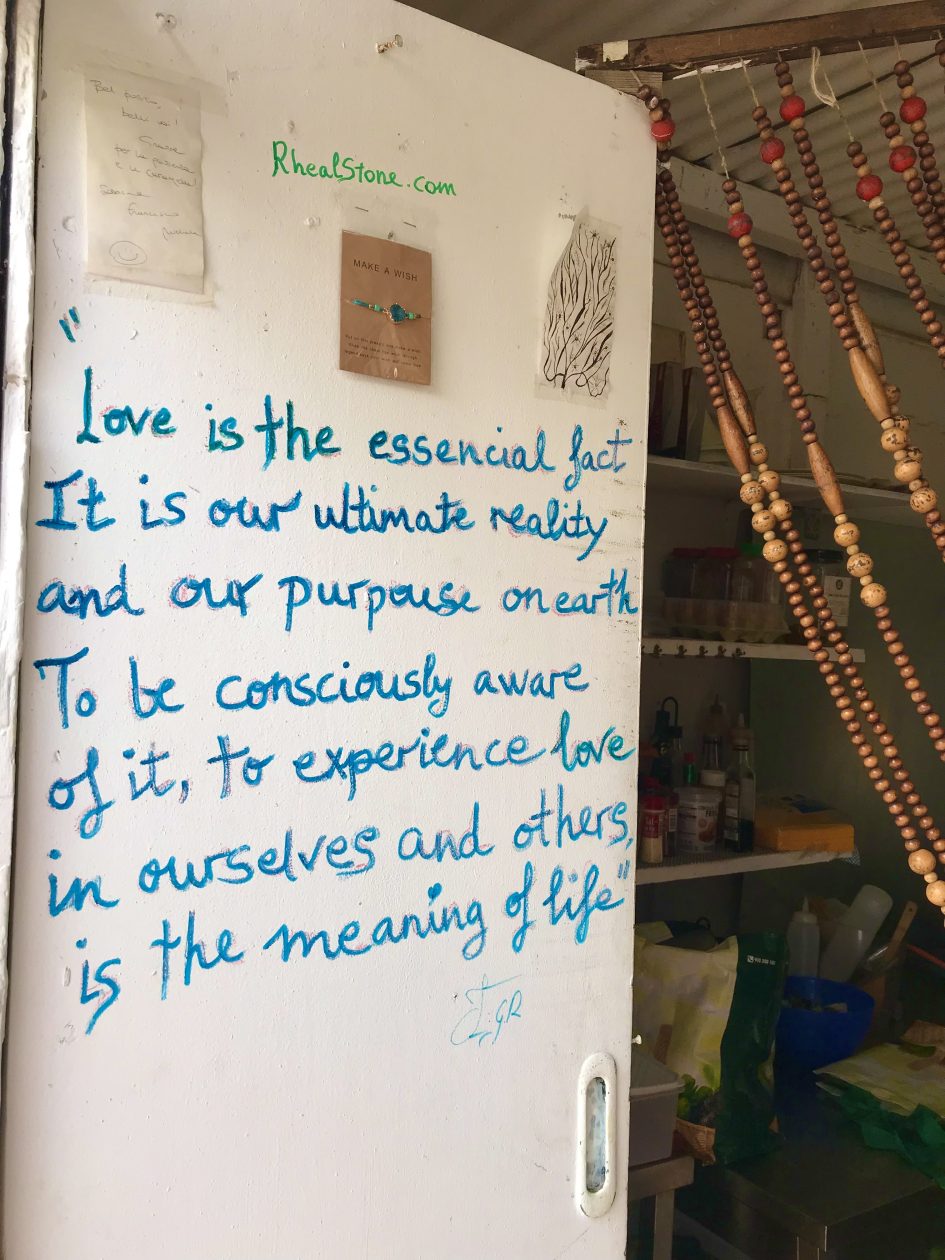 Bel posto,
bella
Grazie
per la pazienza
Francesco
RhealStone.com
MAKE A WISH
"
Love is the essencial fact
It is our ultimate reality
and our purpouse on earth
To be consciously aware
of it, to experience love
in ourselves and others,
is the meaning of life"